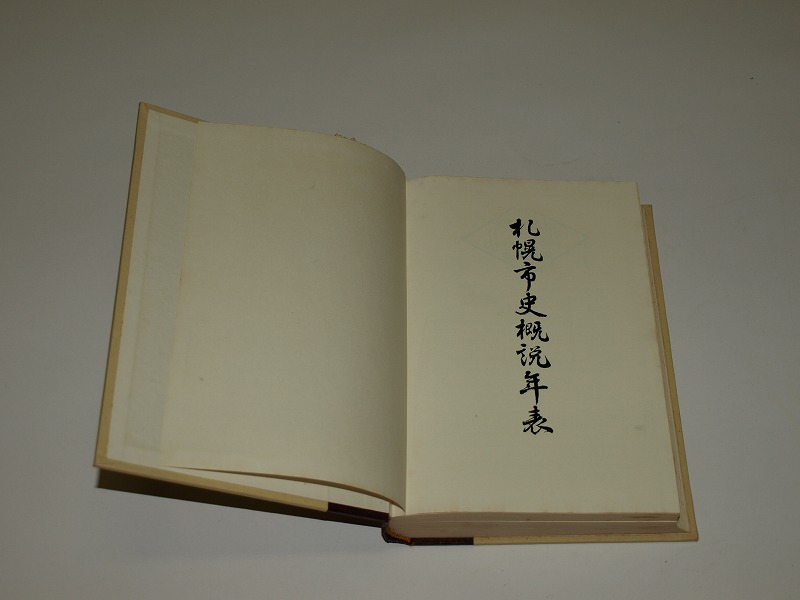 札幌市史概説年表